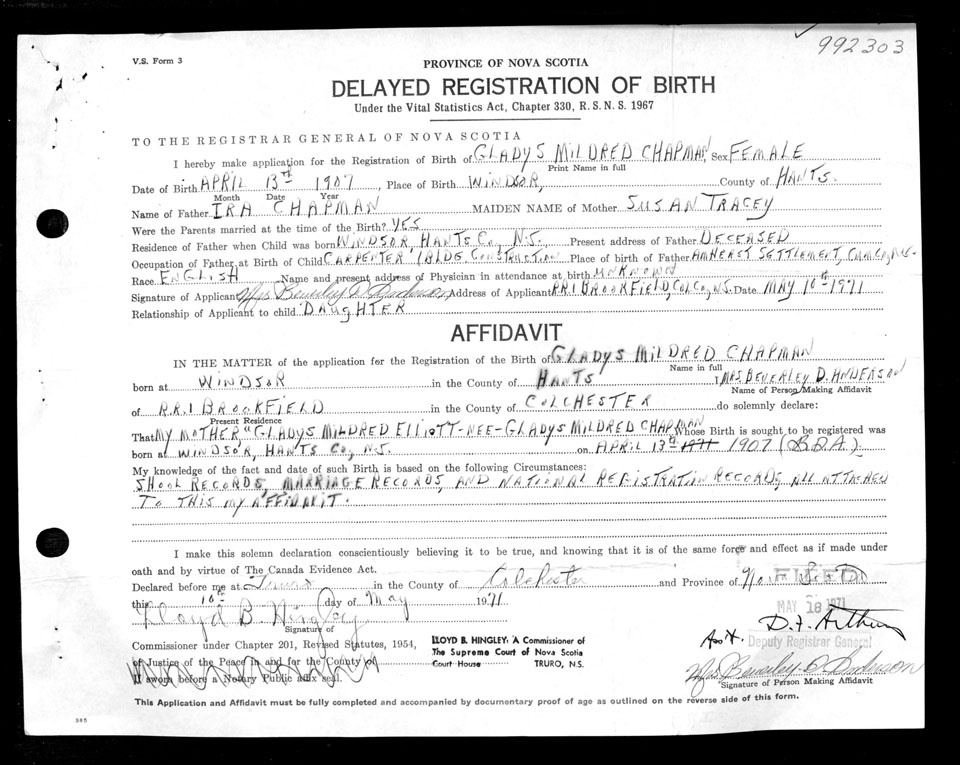 992303
V.S. Form 3
PROVINCE OF NOVA SCOTIA
DELAYED REGISTRATION OF BIRTH
Under the Vital Statistics Act, Chapter 330, R.S.N.S. 1967
TO THE REGISTRAR GENERAL OF NOVA SCOTIA
I hereby make application for the Registration of Birth of GLADYS MILDRED CHAPMAN Sex FEMALE
Print Name in full
Date of Birth APRIL 13th 1907, Place of Birth WINDSOR, County of HANTS.
Month Date Year
Name of Father IRA CHAPMAN MAIDEN NAME of Mother SUSAN TRACEY
Were the Parents married at the time of the Birth? YES
Residence of Father when Child was born WINDSOR, HANTS Co, N.S. Present address of Father DECEASED
Occupation of Father at Birth of Child CARPENTER (BLDG CONSTRUCTION Place of birth of Father AMHERST SETTLEMENT,
Race ENGLISH Name and present address of Physician in attendance at birth UNKNOWN
Signature of Applicant Mrs Beverley D Anderson Address of Applicant RR1 BROOKFIELD, COL CO, N.S. Date MAY 10th 1971
Relationship of Applicant to child DAUGHTER
AFFIDAVIT
IN THE MATTER of the application for the Registration of the Birth of GLADYS MILDRED CHAPMAN
Name in full
born at WINDSOR in the County of HANTS I MRS BEVERLEY D. ANDERSON
Name of Person Making Affidavit
of R.R.1 BROOKFIELD in the County of COLCHESTER do solemnly declare:
Present Residence
That MY MOTHER "GLADYS MILDRED ElliOTT-NEE-GLADYS MILDRED CHAPMAN Whose Birth is sought to be registered was
born at WINDSOR, HANTS Co, N.S. on APRIL 13th 1971 1907 (B.D.A.)
My knowledge of the fact and date of such Birth is based on the following Circumstances:
SHOOL RECORDS, MARRIAGE RECORDS, AND NATIONAL REGISTRATION RECORDS, ALL ATTACHED
TO THIS MY AFFIDAVIT.
I make this solemn declaration conscientiously believing it to be true, and knowing that it is of the same force and effect as if made under
oath and by virtue of The Canada Evidence Act.
Declared before me at Truro in the County of Colchester and Province of Nova Scotia
FILED
this 10th day of May 1971
MAY 18 1971
Lloyd B. Hingley
Signature of
D.F. Arthur
Asst. Deputy Registrar General
Commissioner under Chapter 201, Revised Statutes, 1954,
of Justice of the Peace in and for the County of
If sworn before a Notary Public affix seal.
LLOYD B. HINGLEY, A Commissioner of
The Supreme Court of Nova Scotia
Court House TRURO, N.S.
Mrs Beverley D Anderson
Signature of Person Making Affidavit
This Application and Affidavit must be fully completed and accompanied by documentary proof of age as outlined on the reverse side of this form.